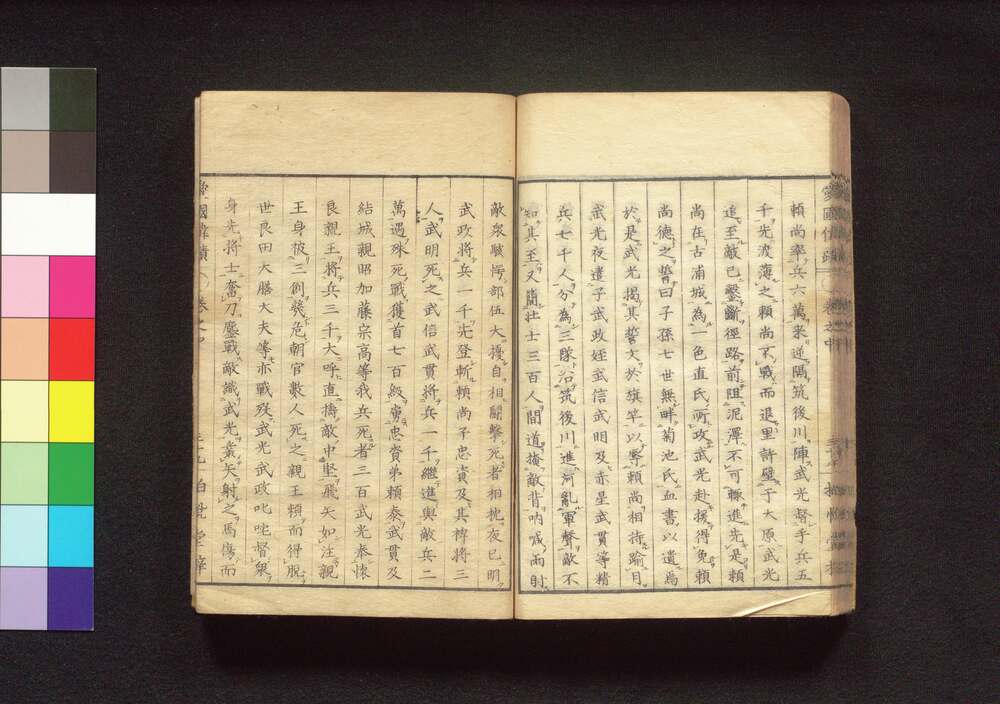 頼尚率兵六萬来逆隔筑後川陣武光督手兵五
千先渡薄之頼尚不戰而退里許壁于大原武光
追至敵已鑿斷徑路前阻泥澤不可輙進先是頼
尚在古浦城為一色直氏所攻武光赴援得免頼
尚德之誓曰子孫七世無畔菊池氏血書以遺焉
於是武光揭其誓文於旗竿以辱頼尚相持踰月
武光夜遣子武政姪武信武明及赤星武貫等精
兵七千人分為三隊沿筑後川進河亂軍聲敵不
知其至又簡壯士三百人間道擣敵背吶喊雨射
敵衆駭愕部伍大擾自相鬭擊死者相枕夜已明
武政將兵一千先登斬頼尚子忠資及其裨將三
人武明死之武信武貫將兵一千繼進與敵兵二
萬遇殊死戰獲首七百級虜忠資弟頼泰武貫及
結城親昭加藤宗高等我兵死者三百武光奉懷
良親王將兵三千大呼直擣敵中堅飛矢如注親
王身被三創幾危朝官數人死之親王頼而得脫
世良田大膳大夫等亦戰歿武光武政叱咤督衆
身先將士奮刀鏖戰敵識武光叢矢射之馬傷而
愛國偉績